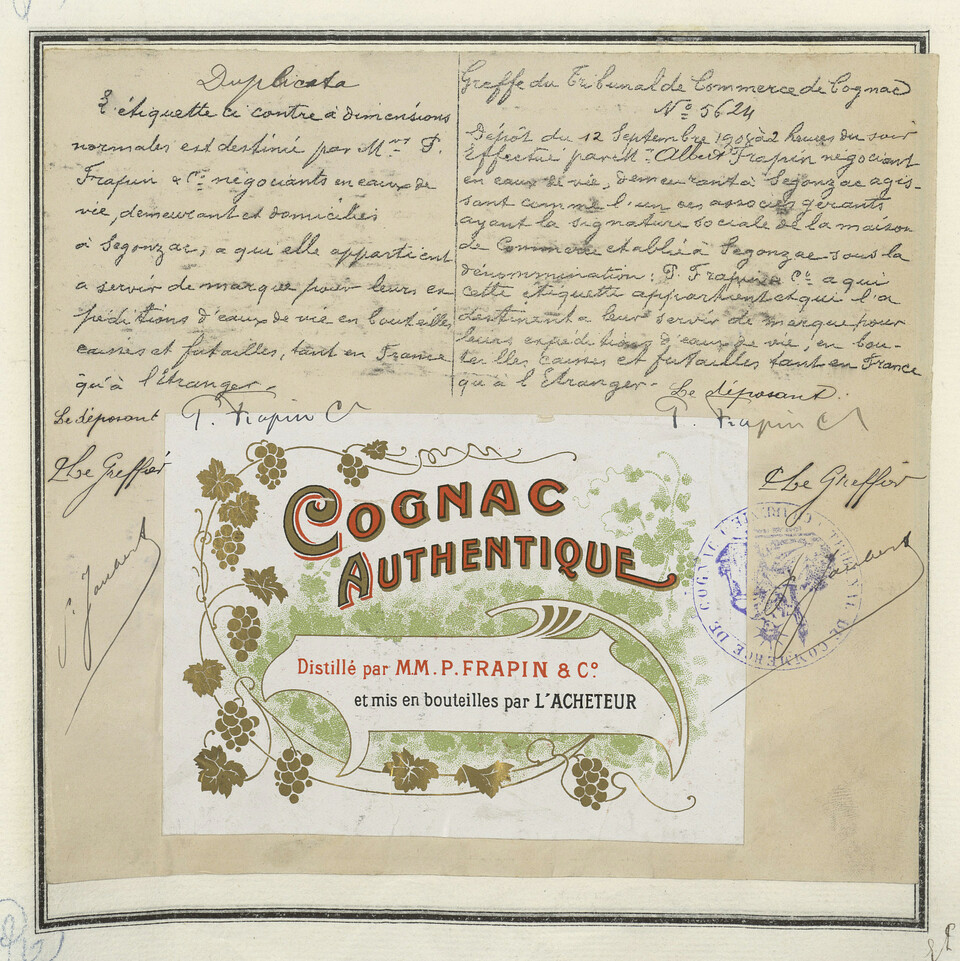 Duplicata
L'étiquette ci contre à dimensions
normales est destinée par Mrs P.
Frapin & Cie négociants en eaux de
vie, demeurant et domiciliés
à Segonzac, a qui elle appartient
a servir de marque pour leurs ex
péditions d'eaux de vie en bouteilles
caisses et futailles, tant en France
qu'à l'Etranger.
Le déposant
P. Frapin Co
Le Greffier
Greffe du Tribunal de Commerce de Cognac
No 5624
Dépôt du 12 Septembre à 2 heures du soir
Effectué par Mr Albert Frapin négociant
en eaux de vie, demeurant à Segonzac agis-
sant comme l'un des associés gérants
ayant la signature sociale de la maison
de Commerce etablie à Segonzac sous la
dénommination: P. Frapin Co a qui
cette étiquette appartient et qui l'a
destinent a leur servir de marque pour
leurs expéditions d'eaux de vie, en bou-
teilles, caisses et futailles tant en France
qu'à l'Etranger.
Le déposant.
P. Frapin Co
Le Greffier
COGNAC
AUTHENTIQUE
Distillé par MM. P. FRAPIN & Co.
et mis en bouteilles par L'ACHETEUR
TRIBUNAL DE COMMERCE DE COGNAC